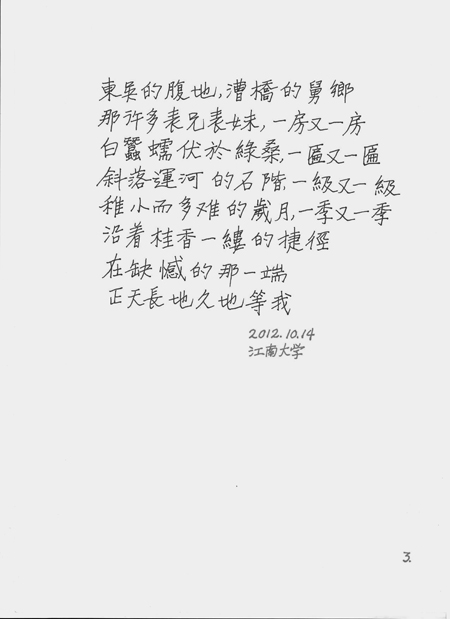 東吳的腹地,漕橋的舅鄉
那许多表兄表妹,一房又一房
白蠶蠕伏於綠桑,一匾又一匾
斜落運河的石階,一級又一級
稚小而多难的歲月,一季又一季
沿着桂香一縷的捷徑
在缺憾的那一端
正天長地久地等我
2012.10.14
江南大学
3.